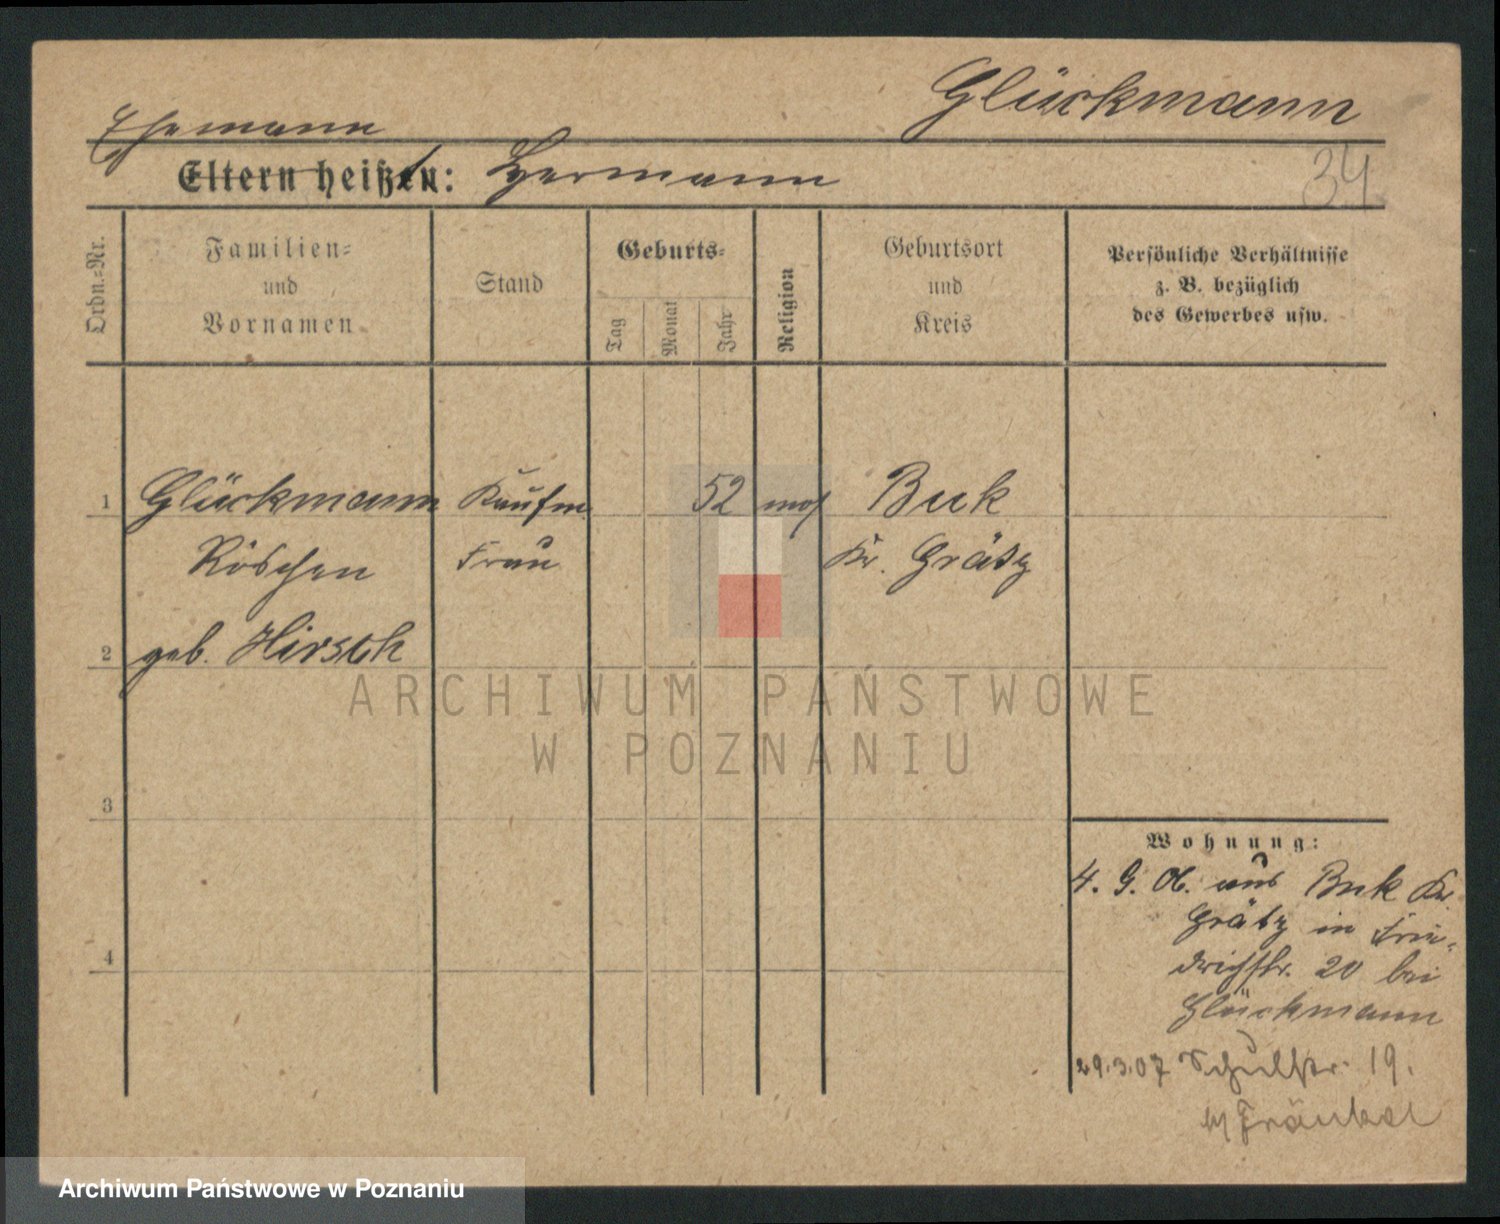 Glückmann
Ehemann
Eltern heißen: Hermann
34
Ordn.-Nr.
Familien-
und
Vornamen
Stand
Geburts-
Tag
Monat
Jahr
Religion
Geburtsort
und
Kreis
Persönliche Verhältnisse
z. B. bezüglich
des Gewerbes usw.
1 Glückmann Kaufm. 52 mos Buk
Röschen Frau Kr. Grätz
2 geb. Hirsch
ARCHIWUM PAŃSTWOWE
W POZNANIU
3
4
Wohnung:
4. 9. 06. aus Buk Kr.
Grätz in Frie-
drichstr. 20 bei
Glückmann
29.3.07 Schulstr. 19.
Fränkel
Archiwum Państwowe w Poznaniu